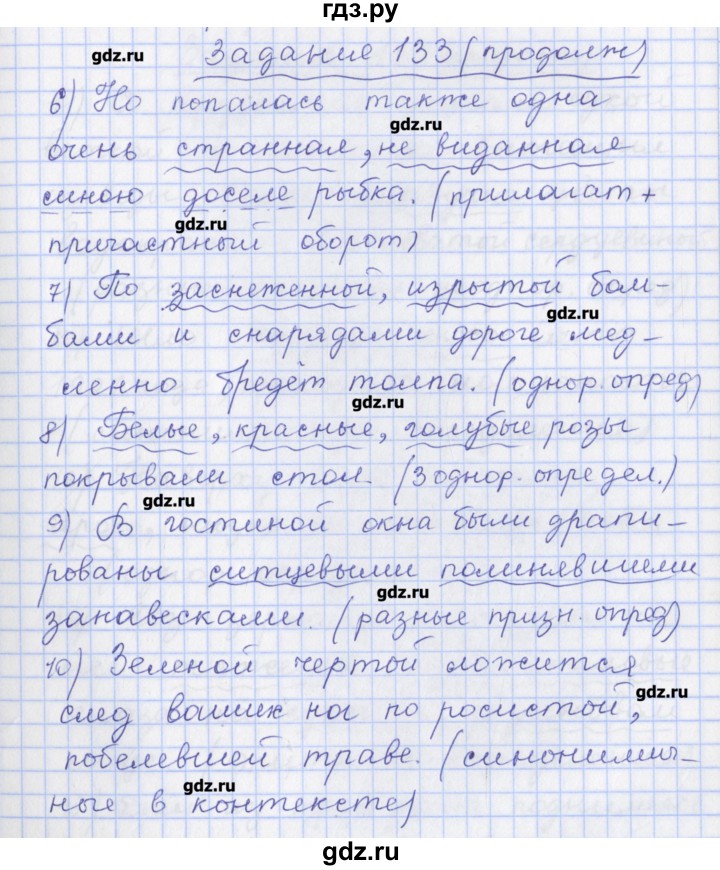 гдз.ру
gdz.ru
Задание 133 (продолж)
6) Но попалась также одна
gdz.ru
очень странная, не виданная
мною доселе рыбка. (прилагат +
gdz.ru
причастный оборот)
7) По заснеженной, изрытой бом-
gdz.ru
бами и снарядами дороге мед-
ленно бредёт толпа. (однор. опред)
gdz.ru
8) Белые, красные, голубые розы
покрывали стол. (3 однор. определ.)
gdz.ru
9) В гостиной окна были драпи-
рованы ситцевыми полинявшими
gdz.ru
занавесками. (разные призн. опред)
10) Зеленой чертой ложится
gdz.ru
след ваших ног по росистой,
побелевшей траве. (синонимич-
gdz.ru
ные в контексте)
gdz.ru